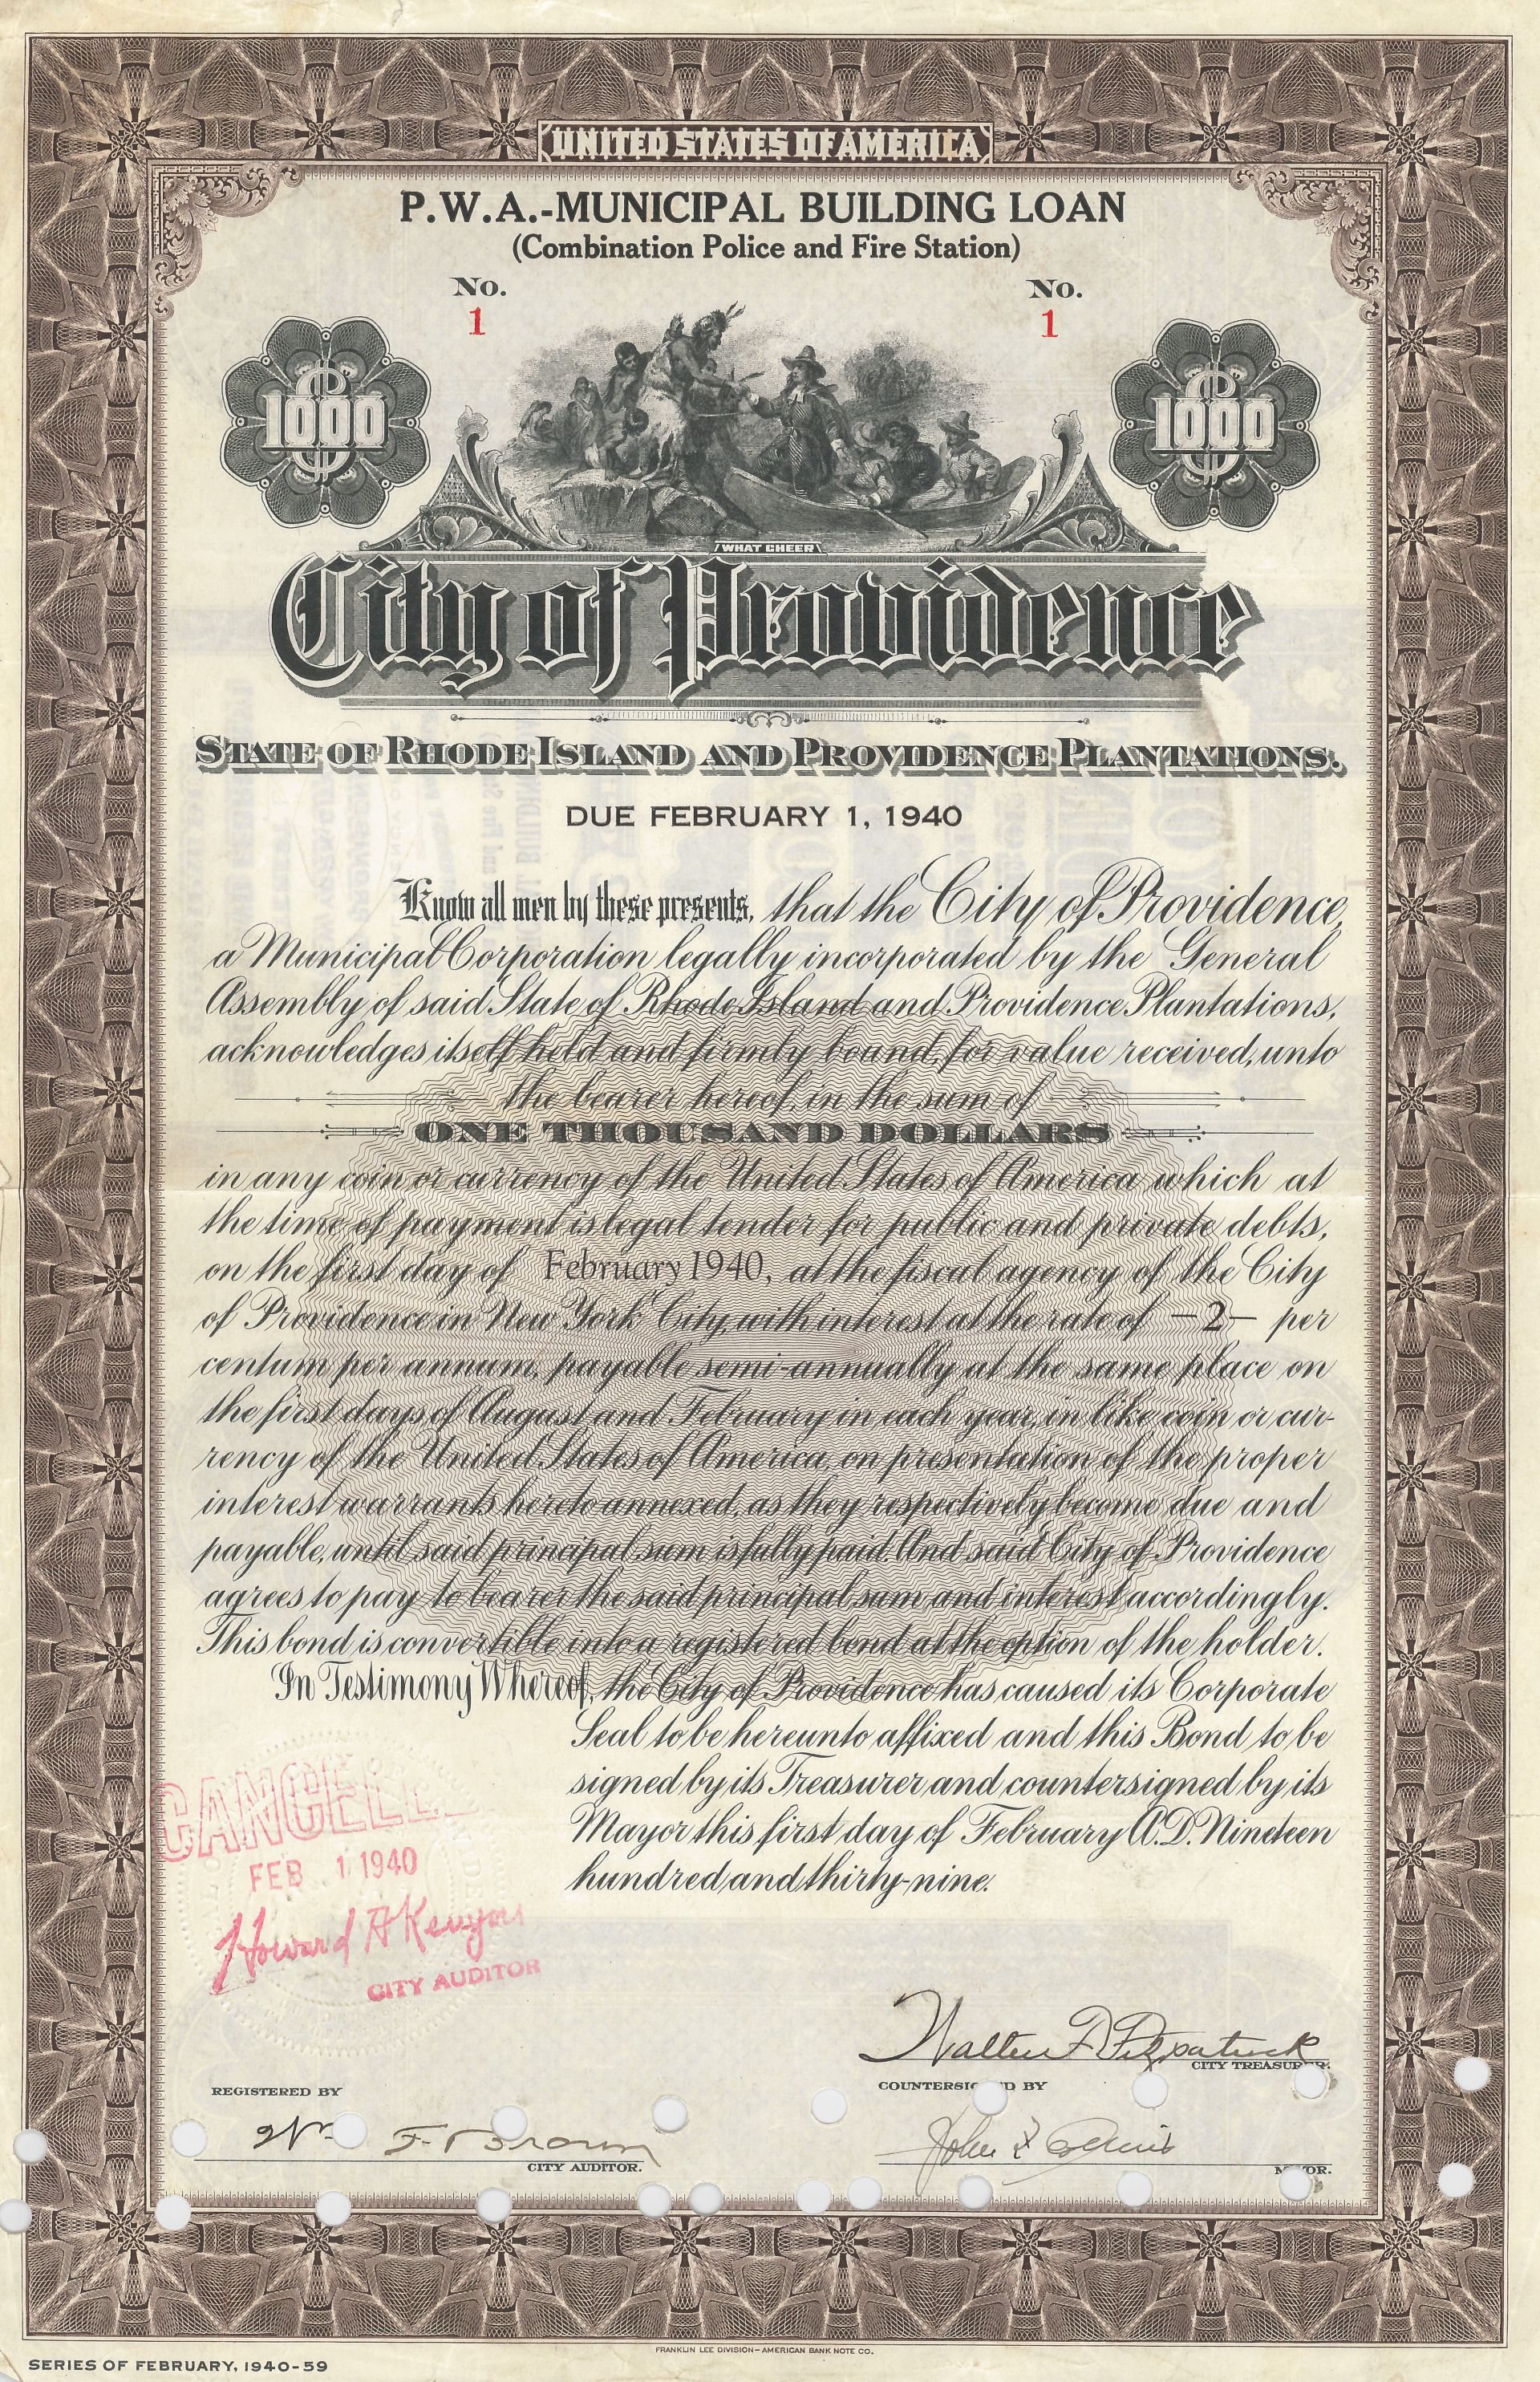 UNITED STATES OF AMERICA
P.W.A.-MUNICIPAL BUILDING LOAN
(Combination Police and Fire Station)
No. No.
1 1
$1000 $1000
WHAT CHEER
City of Providence
STATE OF RHODE ISLAND AND PROVIDENCE PLANTATIONS.
DUE FEBRUARY 1, 1940
Know all men by these presents, that the City of Providence,
a Municipal Corporation legally incorporated by the General
Assembly of said State of Rhode Island and Providence Plantations,
acknowledges itself held and firmly bound, for value received, unto
the bearer hereof, in the sum of
ONE THOUSAND DOLLARS
in any coin or currency of the United States of America which at
the time of payment is legal tender for public and private debts,
on the first day of February 1940, at the fiscal agency of the City
of Providence in New York City, with interest at the rate of -2- per
centum per annum, payable semi-annually at the same place on
the first days of August and February in each year, in like coin or cur-
rency of the United States of America, on presentation of the proper
interest warrants hereto annexed, as they respectively become due and
payable, until said principal sum is fully paid. And said City of Providence
agrees to pay to bearer the said principal sum and interest accordingly.
This bond is convertible into a registered bond at the option of the holder.
In Testimony Whereof, the City of Providence has caused its Corporate
Seal to be hereunto affixed and this Bond to be
signed by its Treasurer and countersigned by its
Mayor this first day of February A.D. Nineteen
hundred and thirty-nine.
CANCELLED
FEB 1 1940
Howard A Kenyon
CITY AUDITOR
Walter F. Fitzpatrick
CITY TREASURER.
REGISTERED BY
COUNTERSIGNED BY
Wm. F. Brown
CITY AUDITOR.
John F Collins
MAYOR.
FRANKLIN LEE DIVISION-AMERICAN BANK NOTE CO.
SERIES OF FEBRUARY, 1940-59